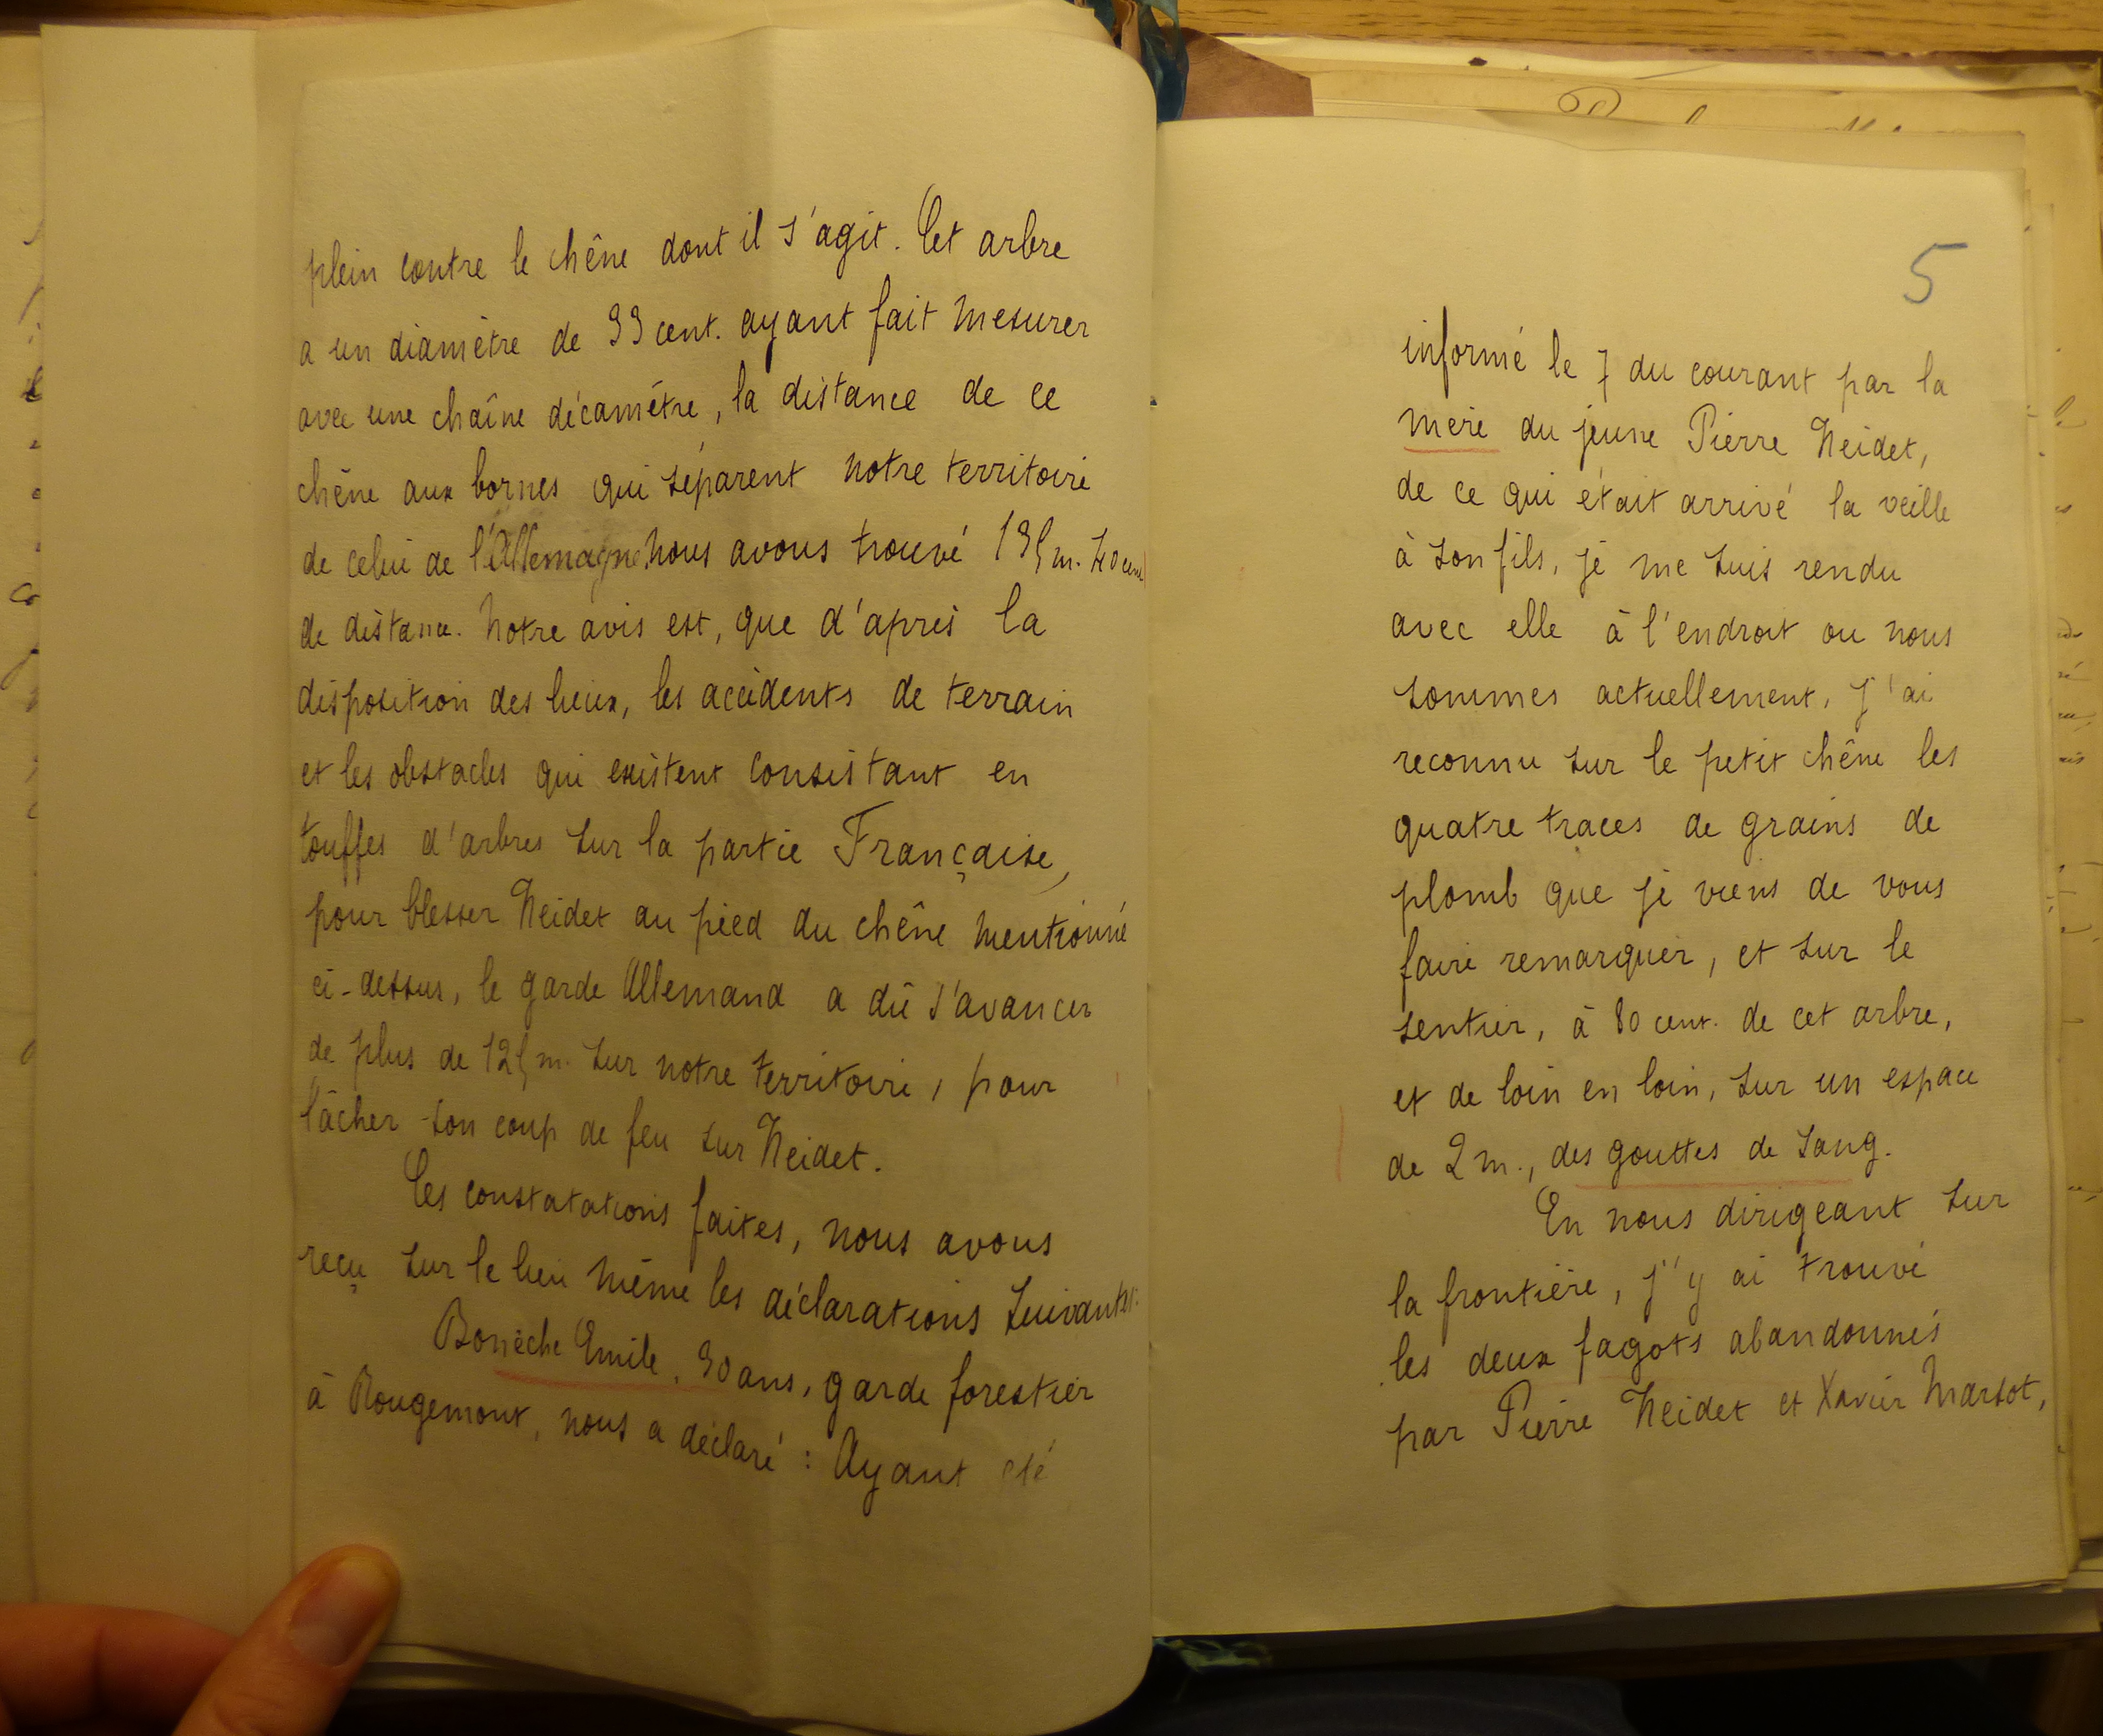 plein contre le chêne dont il s'agit. Cet arbre
a un diamètre de 33 cent. ayant fait mesurer
avec une chaîne décamètre, la distance de ce
chêne aux bornes qui séparent notre territoire
de celui de l'Allemagne, nous avons trouvé 135 m. 40 cent
de distance. Notre avis est, que d'après la
disposition des lieux, les accidents de terrain
et les obstacles qui existent consistant en
touffes d'arbres sur la partie Française,
pour blesser Neidet au pied du chêne mentionné
ci-dessus, le garde Allemand a dû s'avancer
de plus de 125 m. sur notre territoire, pour
lâcher son coup de feu sur Neidet.
Ces constatations faites, nous avons
reçu sur le lieu même les déclarations suivantes:
Bonèche Emile, 30 ans, garde forestier
à Rougemont, nous a déclaré : Ayant été
5
informé le 7 du courant par la
mère du jeune Pierre Neidet,
de ce qui était arrivé la veille
à son fils, je me suis rendu
avec elle à l'endroit ou nous
sommes actuellement, j'ai
reconnu sur le petit chêne les
quatre traces de grains de
plomb que je viens de vous
faire remarquer, et sur le
sentier, à 80 cent. de cet arbre,
et de loin en loin, sur un espace
de 2 m., des gouttes de sang.
En nous dirigeant sur
la frontière, j'y ai trouvé
les deux fagots abandonnés
par Pierre Neidet et Xavier Marsot,